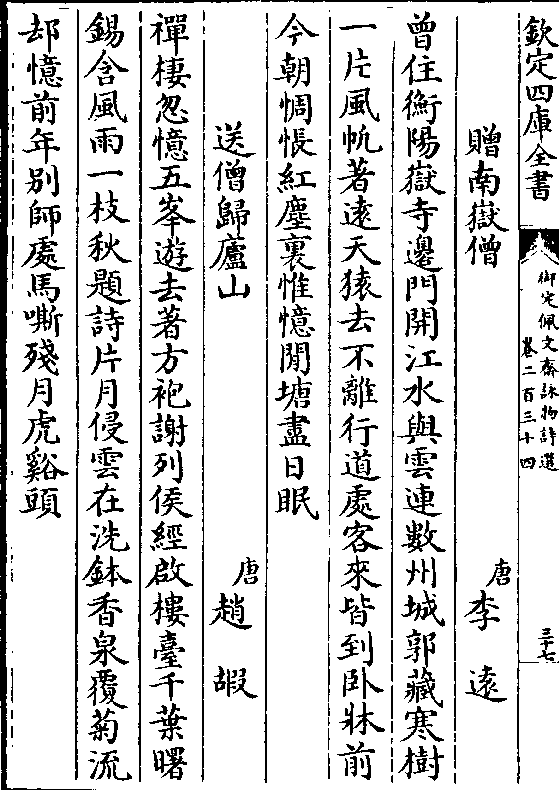 欽定四庫全書
御定佩文齋詠物詩選
卷二百三十四
三十七
贈南嶽僧
唐
李遠
曾住衡陽嶽寺邊門開江水與雲連數州城郭藏寒樹
一片風帆著遠天猿去不離行道處客來皆到卧牀前
今朝惆悵紅塵裏惟憶閒塘盡日眠
送僧歸廬山
唐
趙嘏
禪棲忽憶五峯遊去著方袍謝列侯經啟樓臺千葉曙
錫含風雨一枝秋題詩片月侵雲在洗鉢香泉覆菊流
却憶前年別師處馬嘶殘月虎谿頭